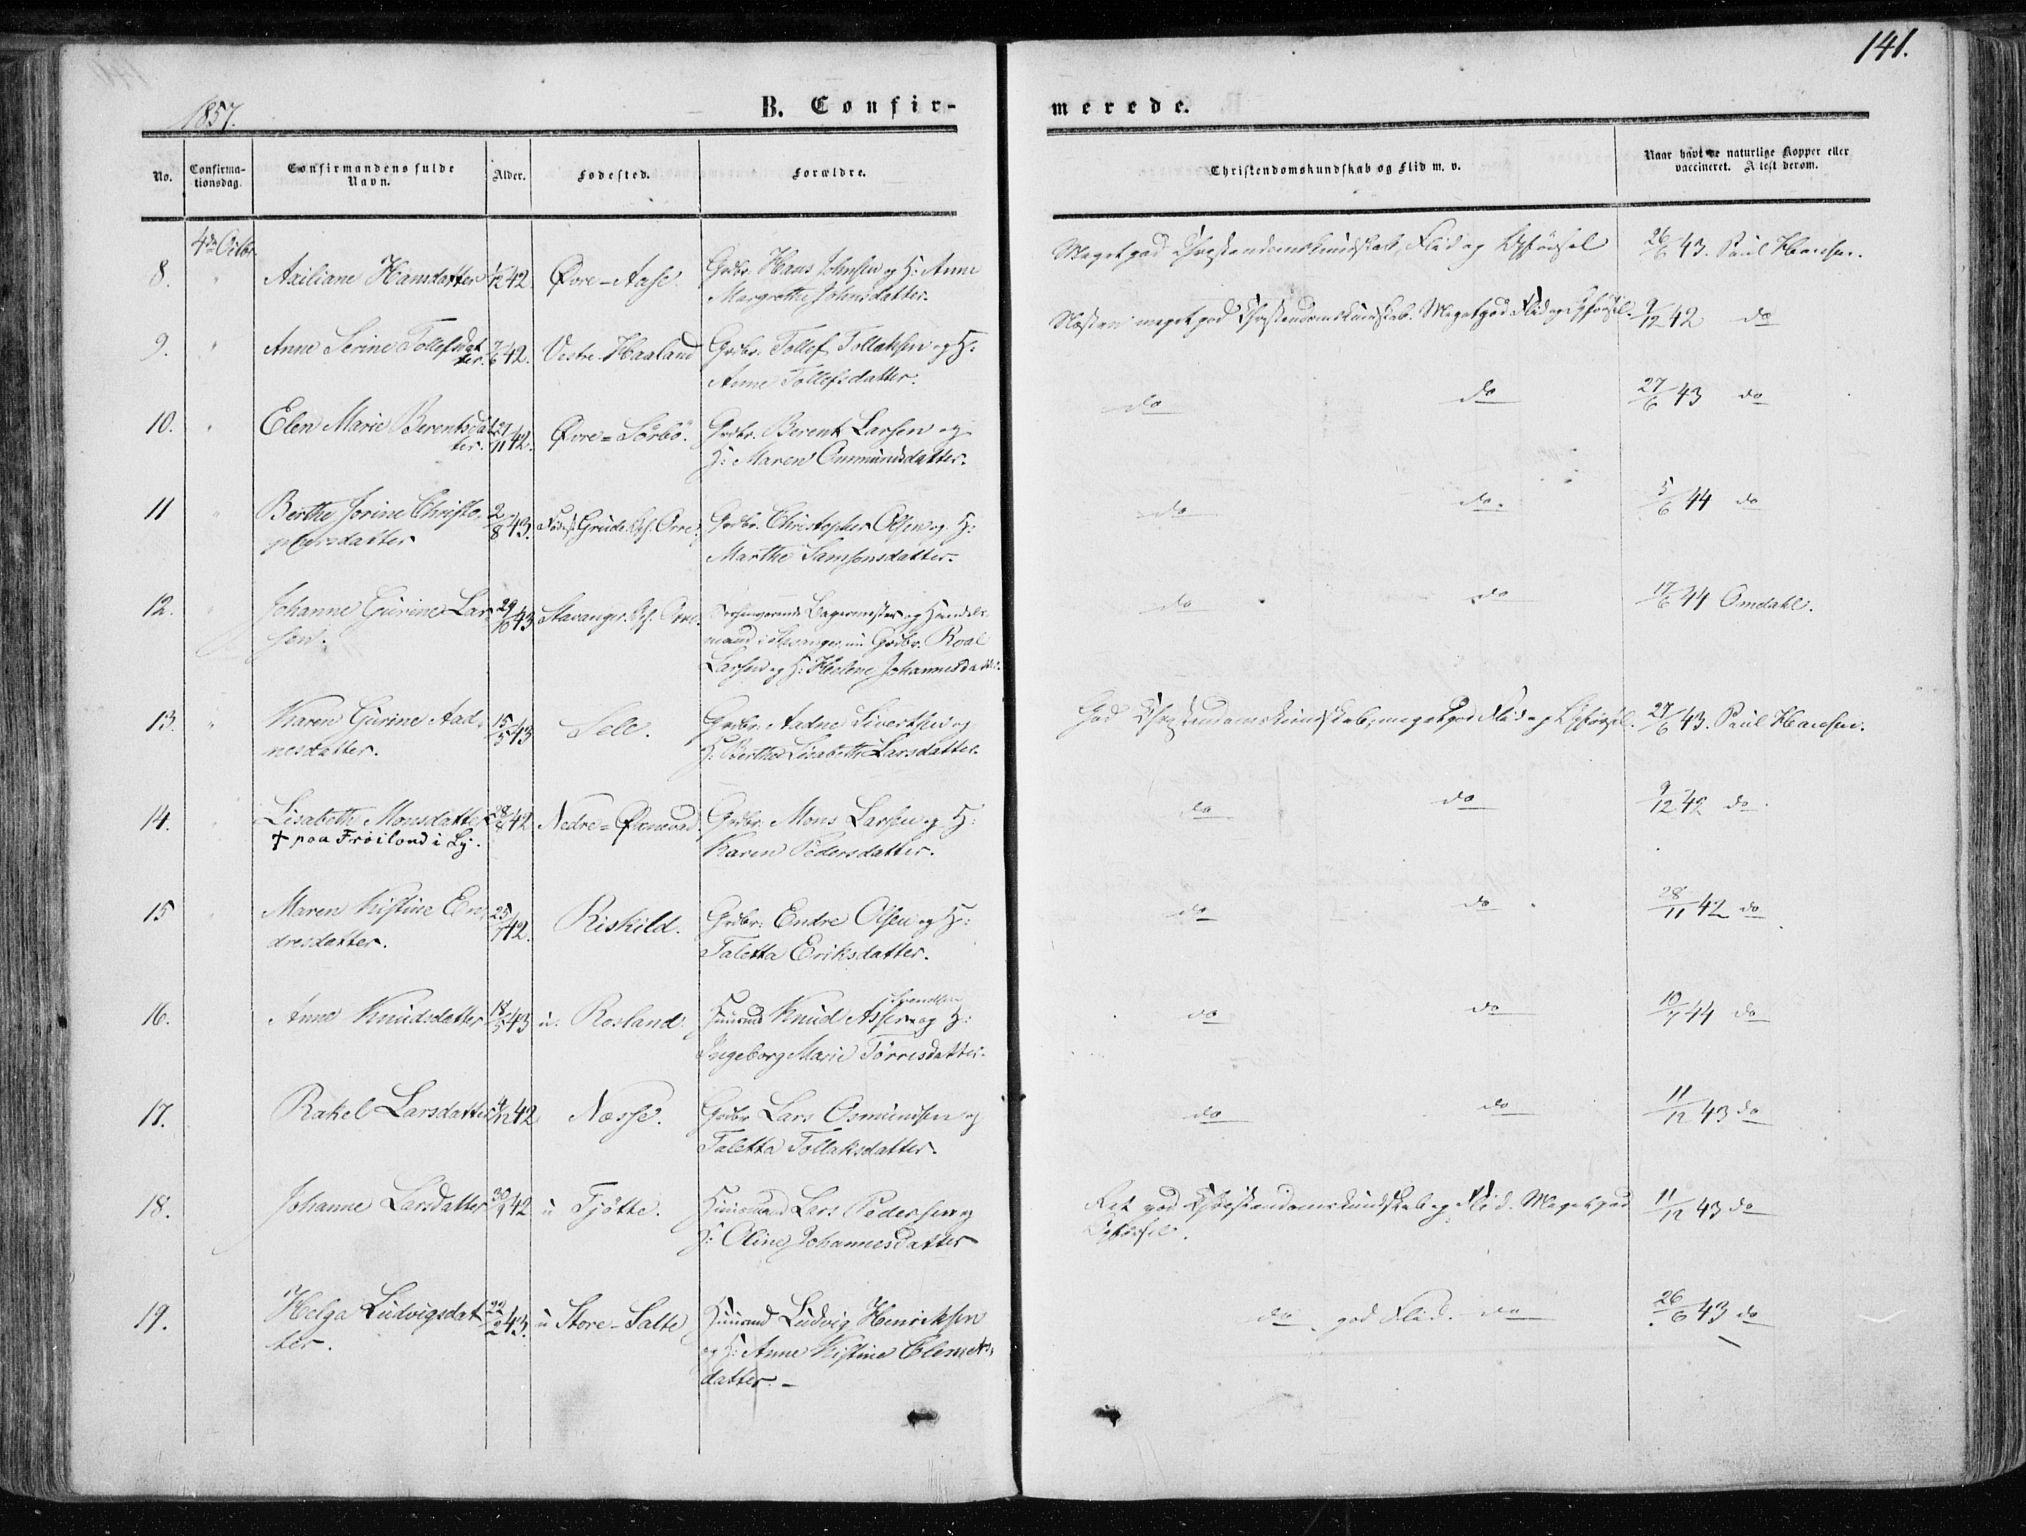 141.
1857.
B. Confir-
merede.
No.
Confirma-
tionsdag.
Confirmandens fulde
Navn.
Alder.
Fødested.
Forældre.
Christendomskundskab og Flid m. v.
Naar havt de naturlige Kopper eller
vaccineret. Attest derom.
4de Octbr.
8. " Axiliane Hansdatter 1/12 42. Øvre-Aase. Grdbr. Hans Johnsen og H: Anne
Margrethe Johnsdatter.
Meget god Christendomskundskab, Flid og Opførsel 26/6 43. Paul Hansen.
9. " Anne Serine Tollefsdat
ter. 42. Vestre-Haaland Grdbr. Tollef Tollaksen og H:
Anne Tollefsdatter.
Næsten meget god Christendomskundskab. Meget god Flid og Opførsel. 9/12 42 do
10. " Elen Marie Berentsdat
ter. 27/11 42. Øvre=Sörbö. Grdbr. Berent Larsen og
H: Maren Ommundsdatter.
do do 27/6 43 do
11 " Berthe Jorine Christo-
phersdatter 2/8 43. Grude Orre. Grdbr. Christopher Olsen og H:
Marthe Samsonsdatter.
do do. 5/6 44 do
12. " Johanne Gurine Lar
sen. 29/10 43 Stavanger. Orre. Bagermester og Handels
mand i Stavanger, nu Grdbr. Roal
Larsen og H: Helene Johannesdatter.
do do 17/6 44 Omdahl.
13. " Karen Gurine Aad-
nesdatter. 15/5 43 Sele. Grdbr. Aadne Sivertsen og
H: Berthe Lisabeth Larsdatter.
God Christendomskundskab, meget god Flid og Opførsel. 27/6 43. Paul Hansen.
14. Lisabeth Monsdatter 42 Nedre=Øxnevad. Grdbr. Mons Larsen og H:
† paa Frøiland i Ly.
Karen Pedersdatter.
do do 9/12 42 do.
15 Maren Kistine En-
dresdatter. 25/7 42. Riskild. Grdbr. Endre Olsen og H:
Taletta Eriksdatter.
do do 28/11 42 do
16. Anne Knudsdatter 18/5 43 u. Rosland. Huusmd Knud Assersen og H:
Ingeborg Marie Törresdatter.
do do 10/7 44 do
17. Rakel Larsdatter 4/12 42 Næsse. Grdbr Lars Osmundsen og
Taletta Tollaksdatter.
do do 11/12 43 do
18. Johanne Larsdatter 30/9 42 u Tjötte. Huusmand Lars Pedersen og
H: Oline Johannesdatter
Ret god Christendomskundskab og Flid. Meget god
Opførsel. 11/12 43 do
19. Helga Ludvigsdat
ter. 22/2 43. u Store-Salte Huusmd Ludvig Henriksen
og H: Anne Kistine Clements
datter. –
do. god Flid. do 26/6 43 do